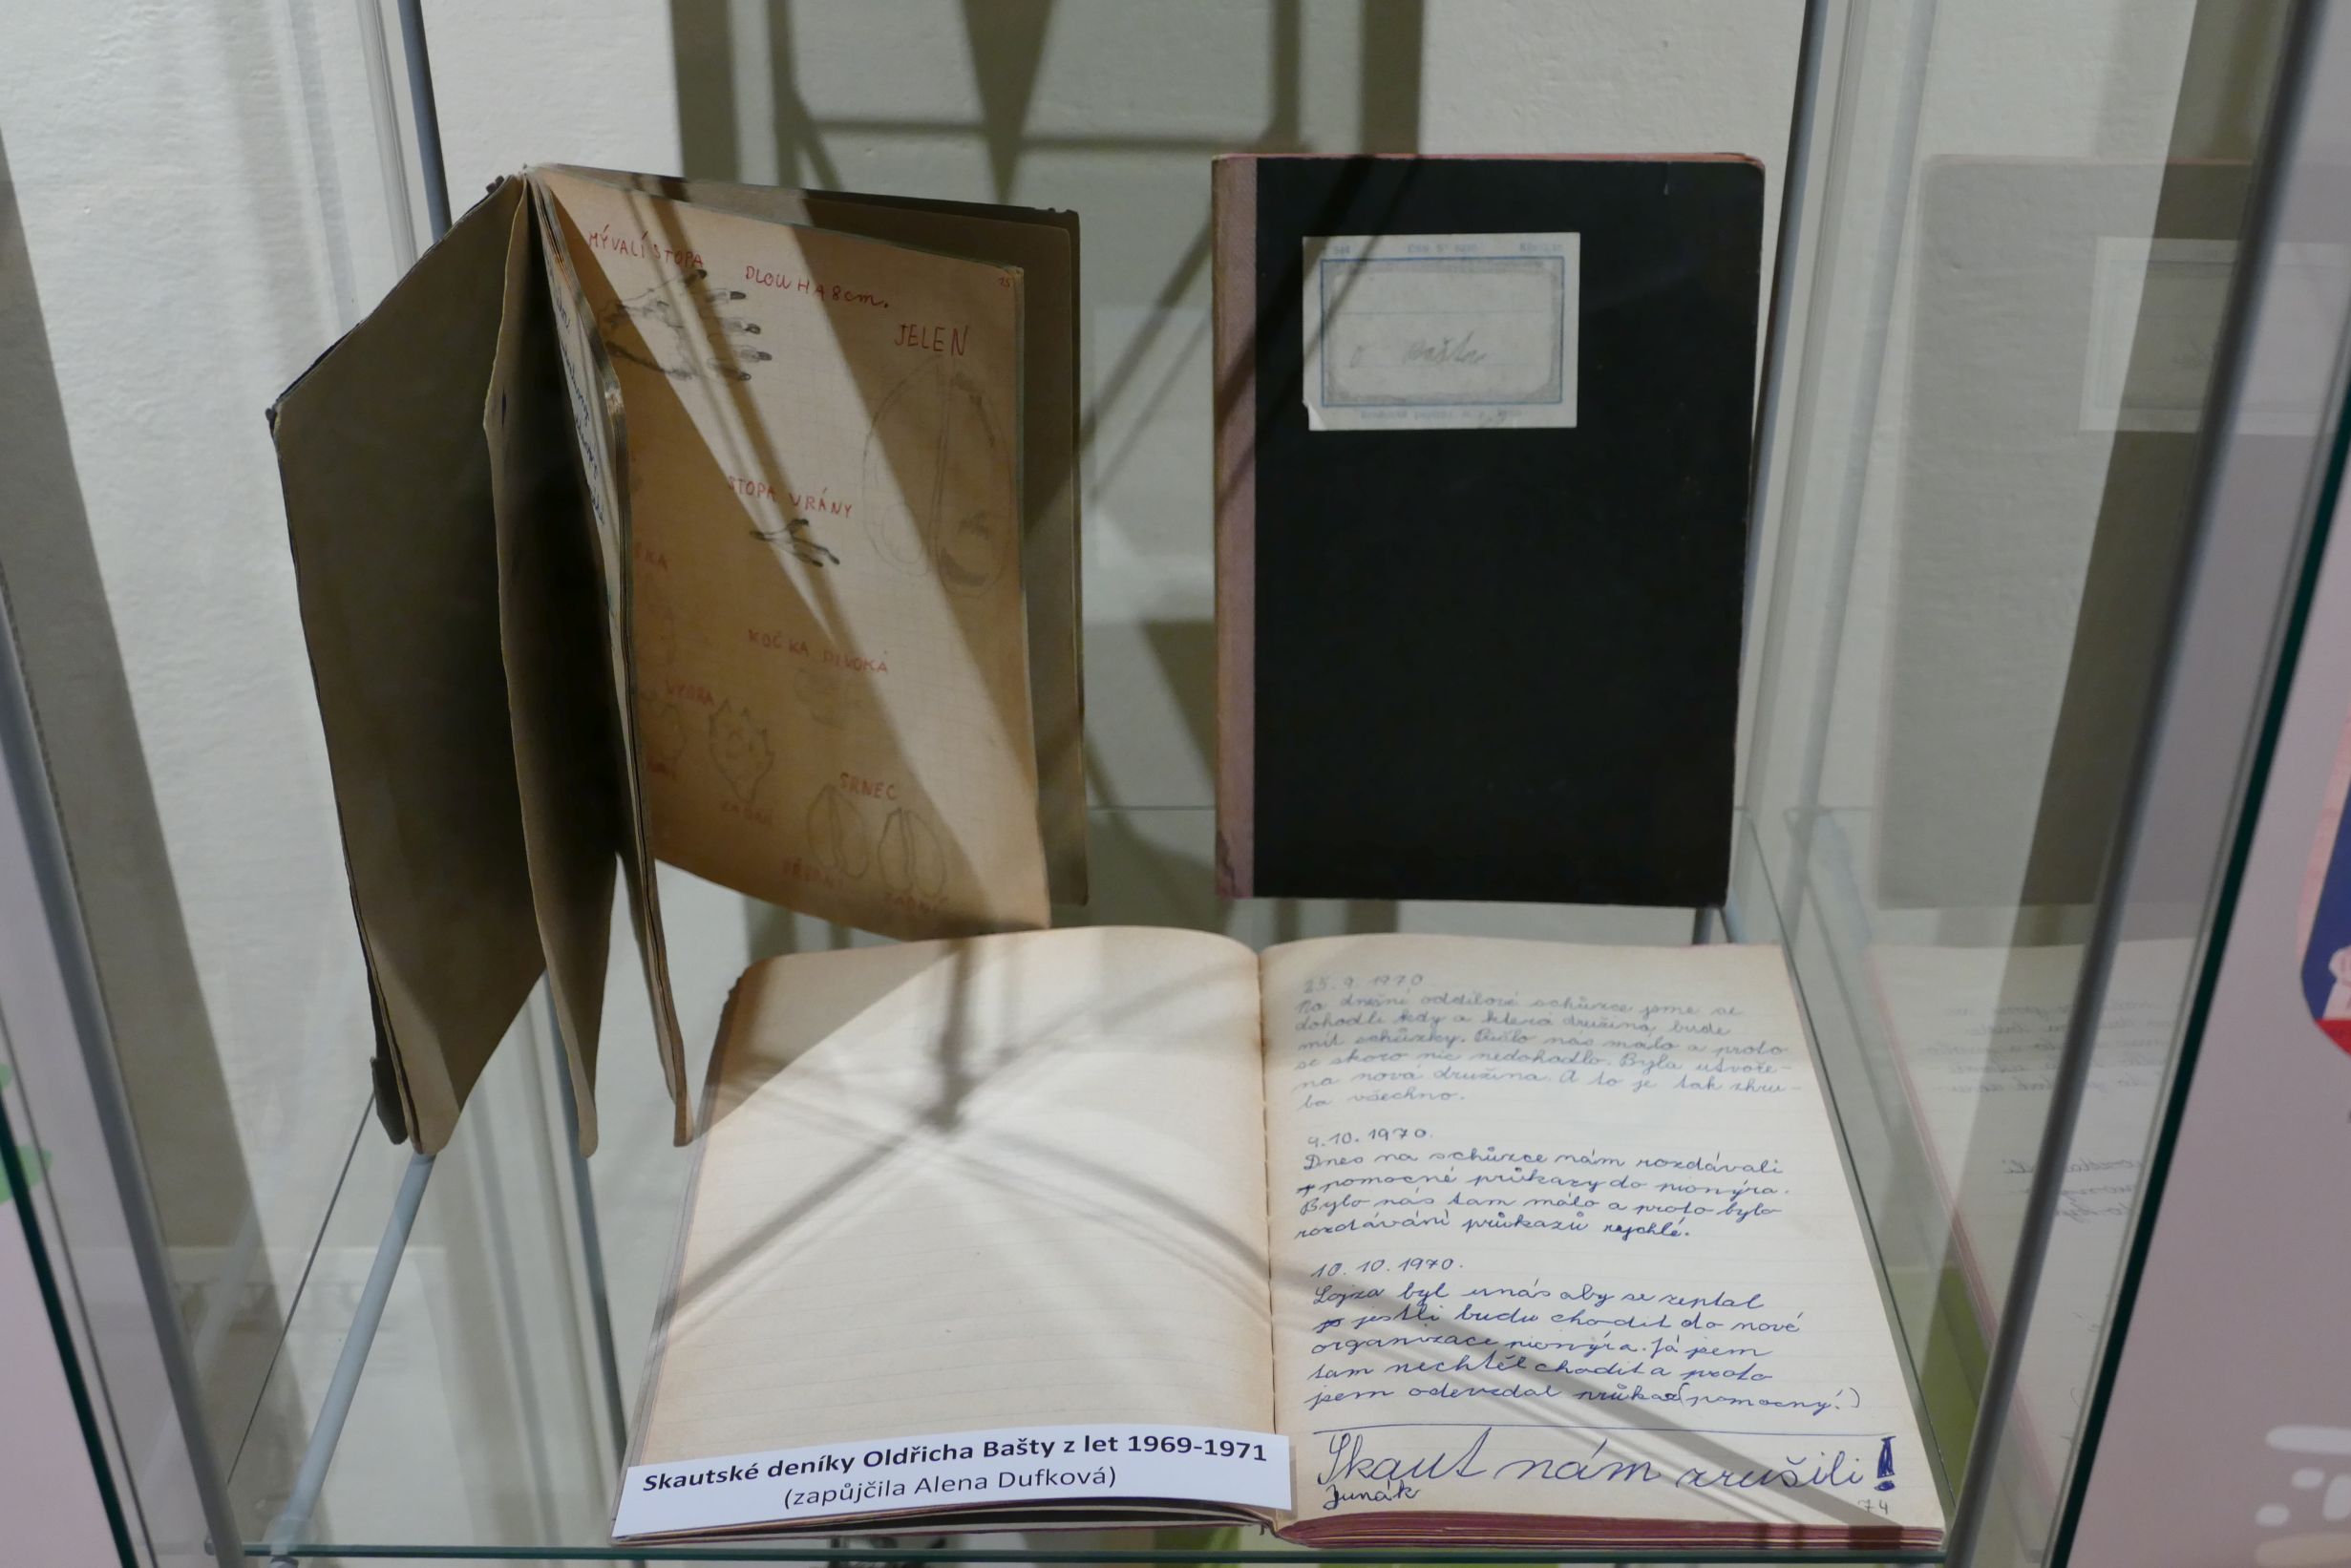 MÝVALÍ STOPA DLOUHA 8cm.
JELEN
STOPA VRÁNY
KOČKA DIVOKÁ
VYDRA
SRNEC
ZADNÍ
Bašta
9. 1970.
Na dnešní oddílové schůzce jsme se
dohodli kdy a která družina bude
mít schůzky. Přišlo nás málo a proto
se skoro nic nedohodlo. Byla utvoře-
na nová družina. A to je tak zhru-
ba všechno.
9.10.1970.
Dnes na schůzce nám rozdávali
pomocné průkazy do pionýra.
Bylo nás tam málo a proto bylo
rozdávání průkazů rychlé.
10.10.1970.
Lojza byl unás aby se zeptal
jestli budu chodit do nové
organizace pionýra. Já jsem
tam nechtěl chodit a proto
jsem odevzdal průkaz (pomocný!)
Skaut nám zrušili!
Junák
74
Skautské deníky Oldřicha Bašty z let 1969-1971
(zapůjčila Alena Dufková)